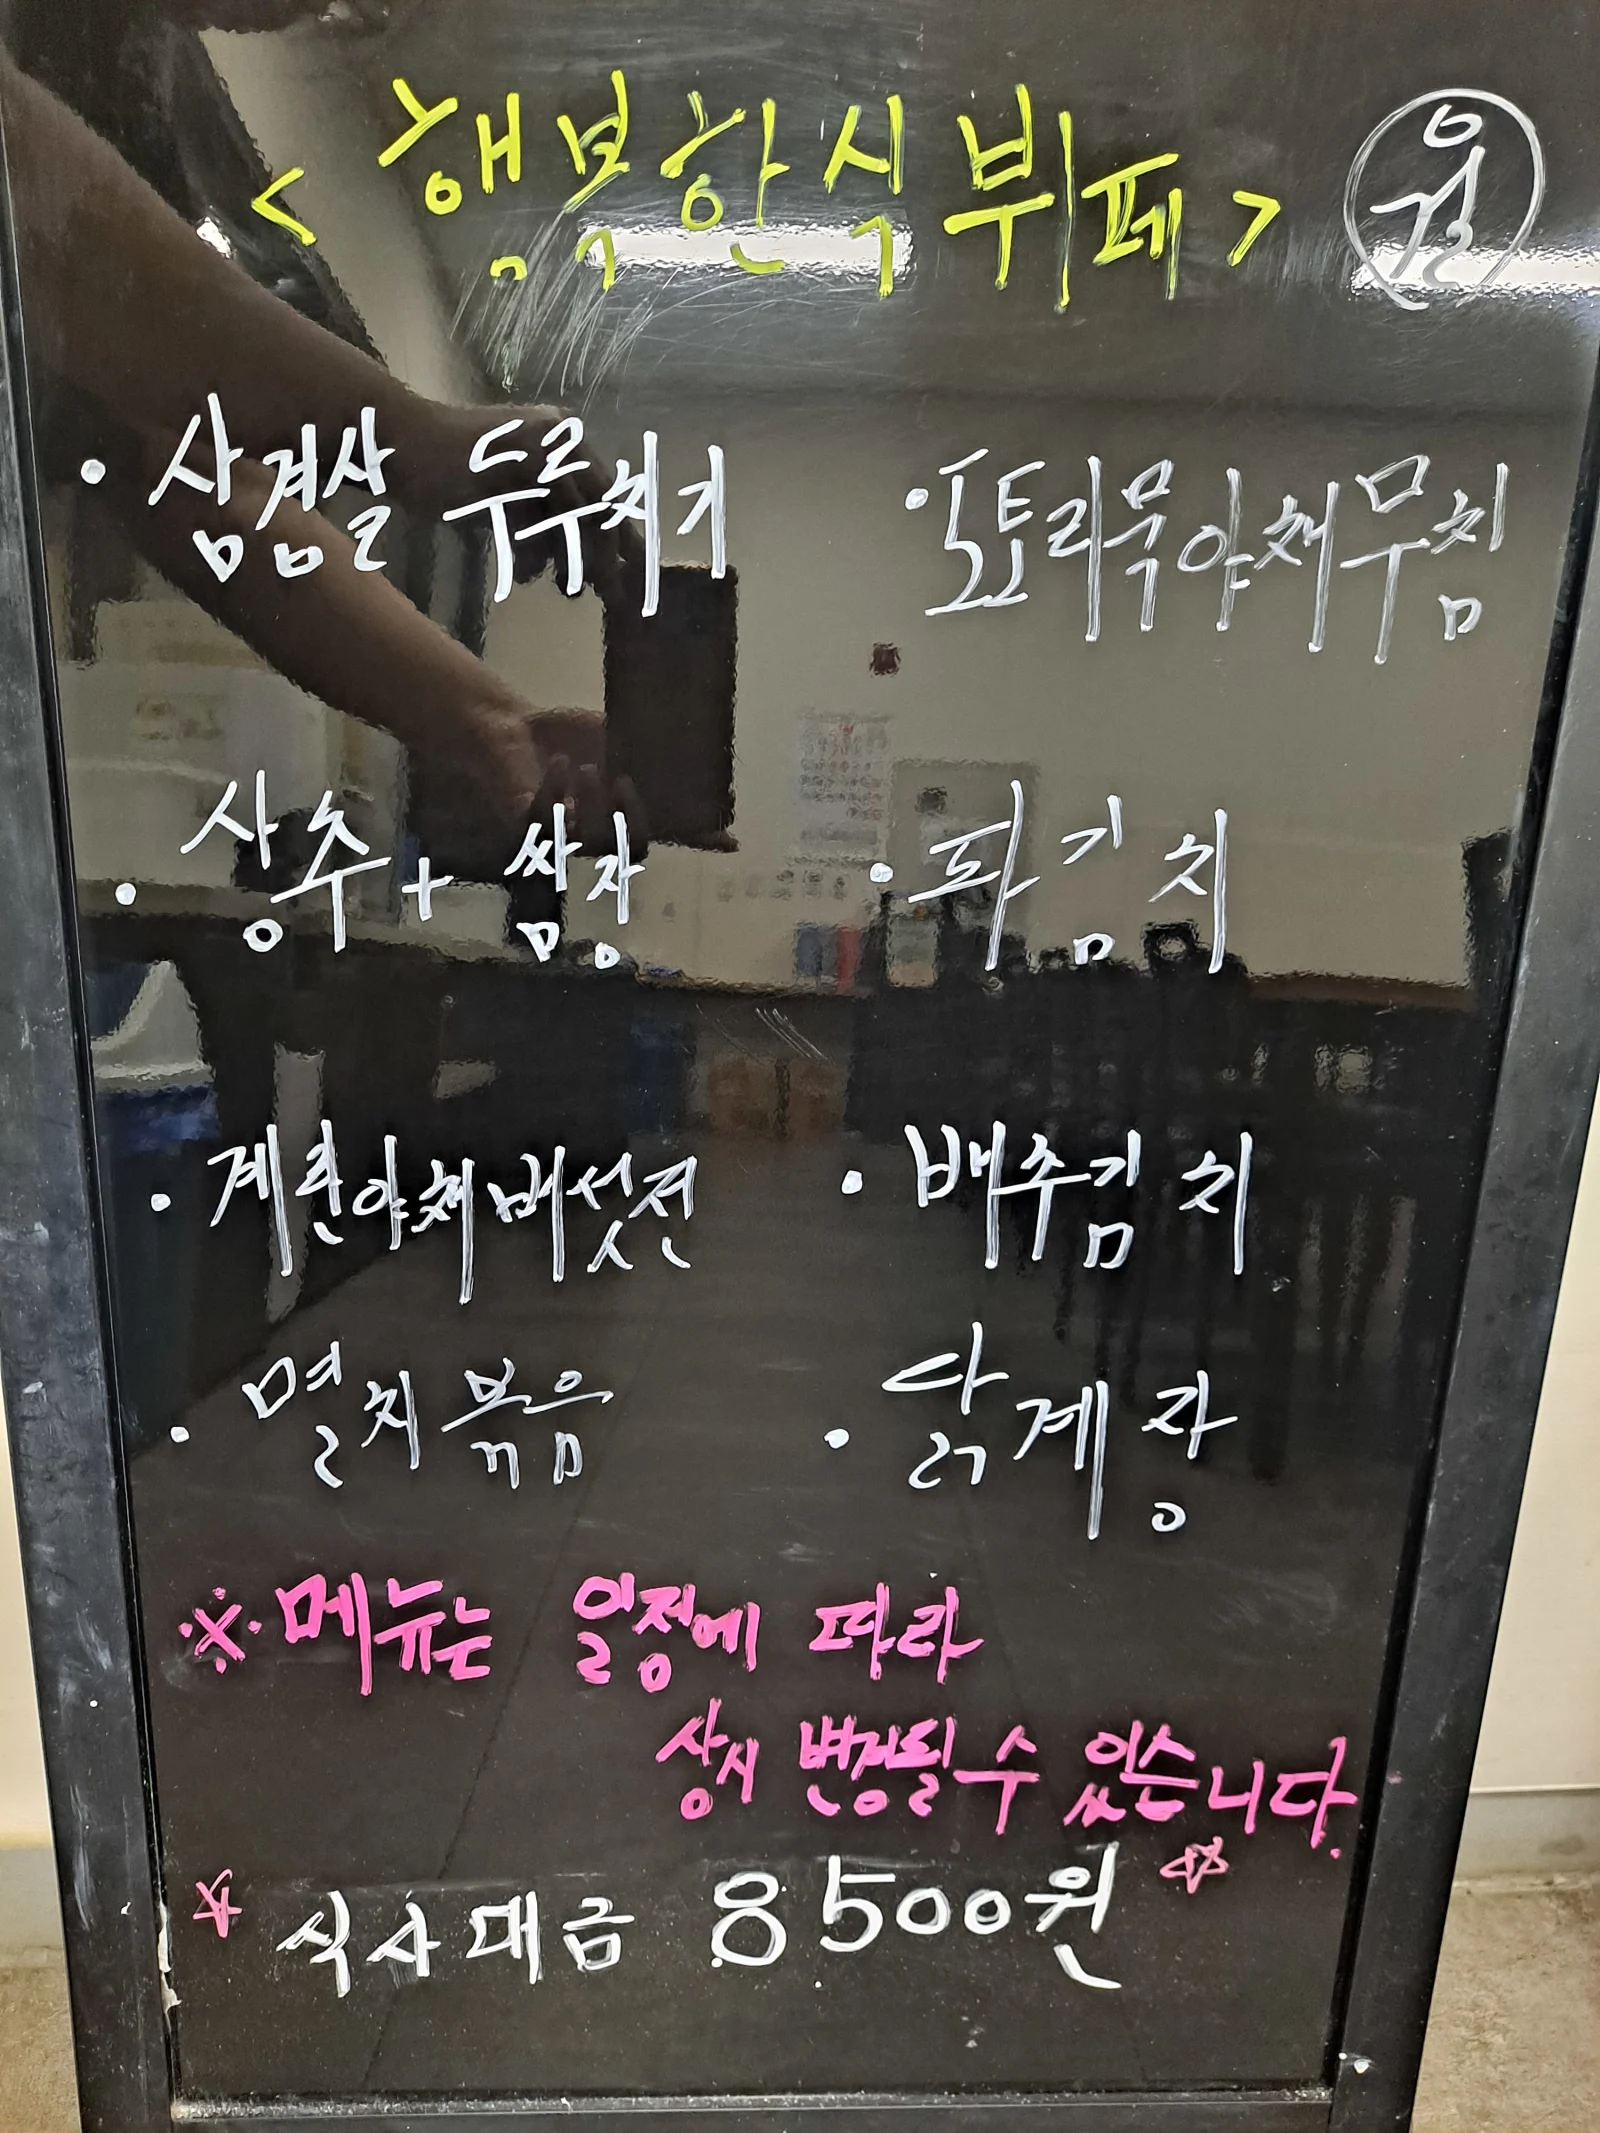 <행복한식뷔페> 월
· 삼겹살 두루치기 · 도토리묵야채무침
· 상추 + 쌈장 · 파김치
· 계란야채버섯전 · 배추김치
· 멸치볶음 · 닭계장
※메뉴는 일정에 따라
상시 변경될 수 있습니다.
☆ 식사대금 8500원 ☆